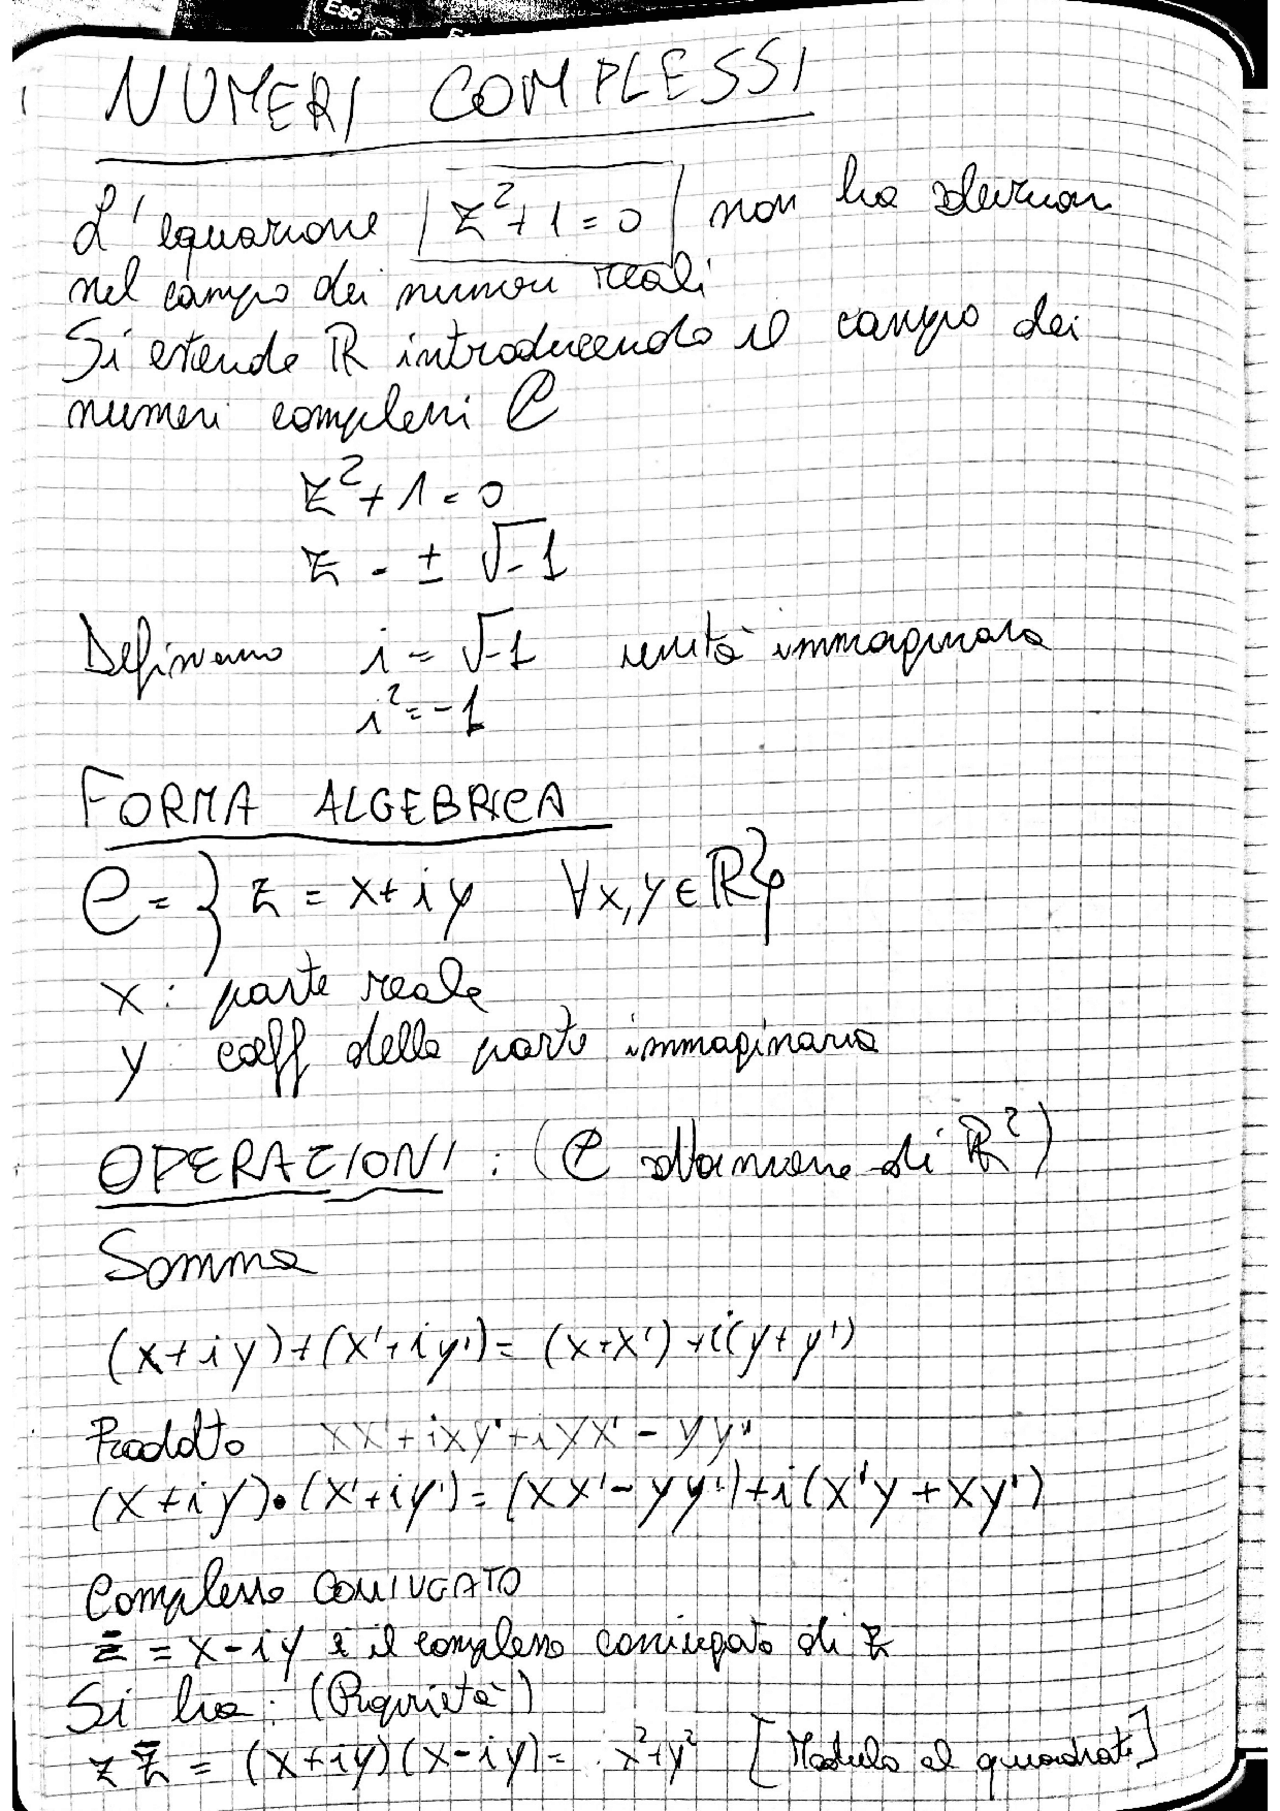 Esc
NUMERI COMPLESSI
L'equazione z²+1=0 non ha soluzioni
nel campo dei numeri reali
Si estende ℝ introducendo il campo dei
numeri complessi ℂ
z²+1=0
z = ± √-1
Definiamo i = √-1 unità immaginaria
i² = -1
FORMA ALGEBRICA
ℂ = { z = x+iy ∀x,y ∈ ℝ}
x : parte reale
y coeff della parte immaginaria
OPERAZIONI : (ℂ di ℝ²)
Somma
(x+iy)+(x'+iy') = (x+x')+i(y+y')
Prodotto xx'+ixy'+iyx'-yy'
(x+iy)•(x'+iy') = (xx'-yy')+i(x'y+xy')
Complesso CONIUGATO
z̄ = x-iy è il complesso coniugato di z
Si ha : (Proprietà)
z z̄ = (x+iy)(x-iy) = x²+y² [Modulo al quadrato]